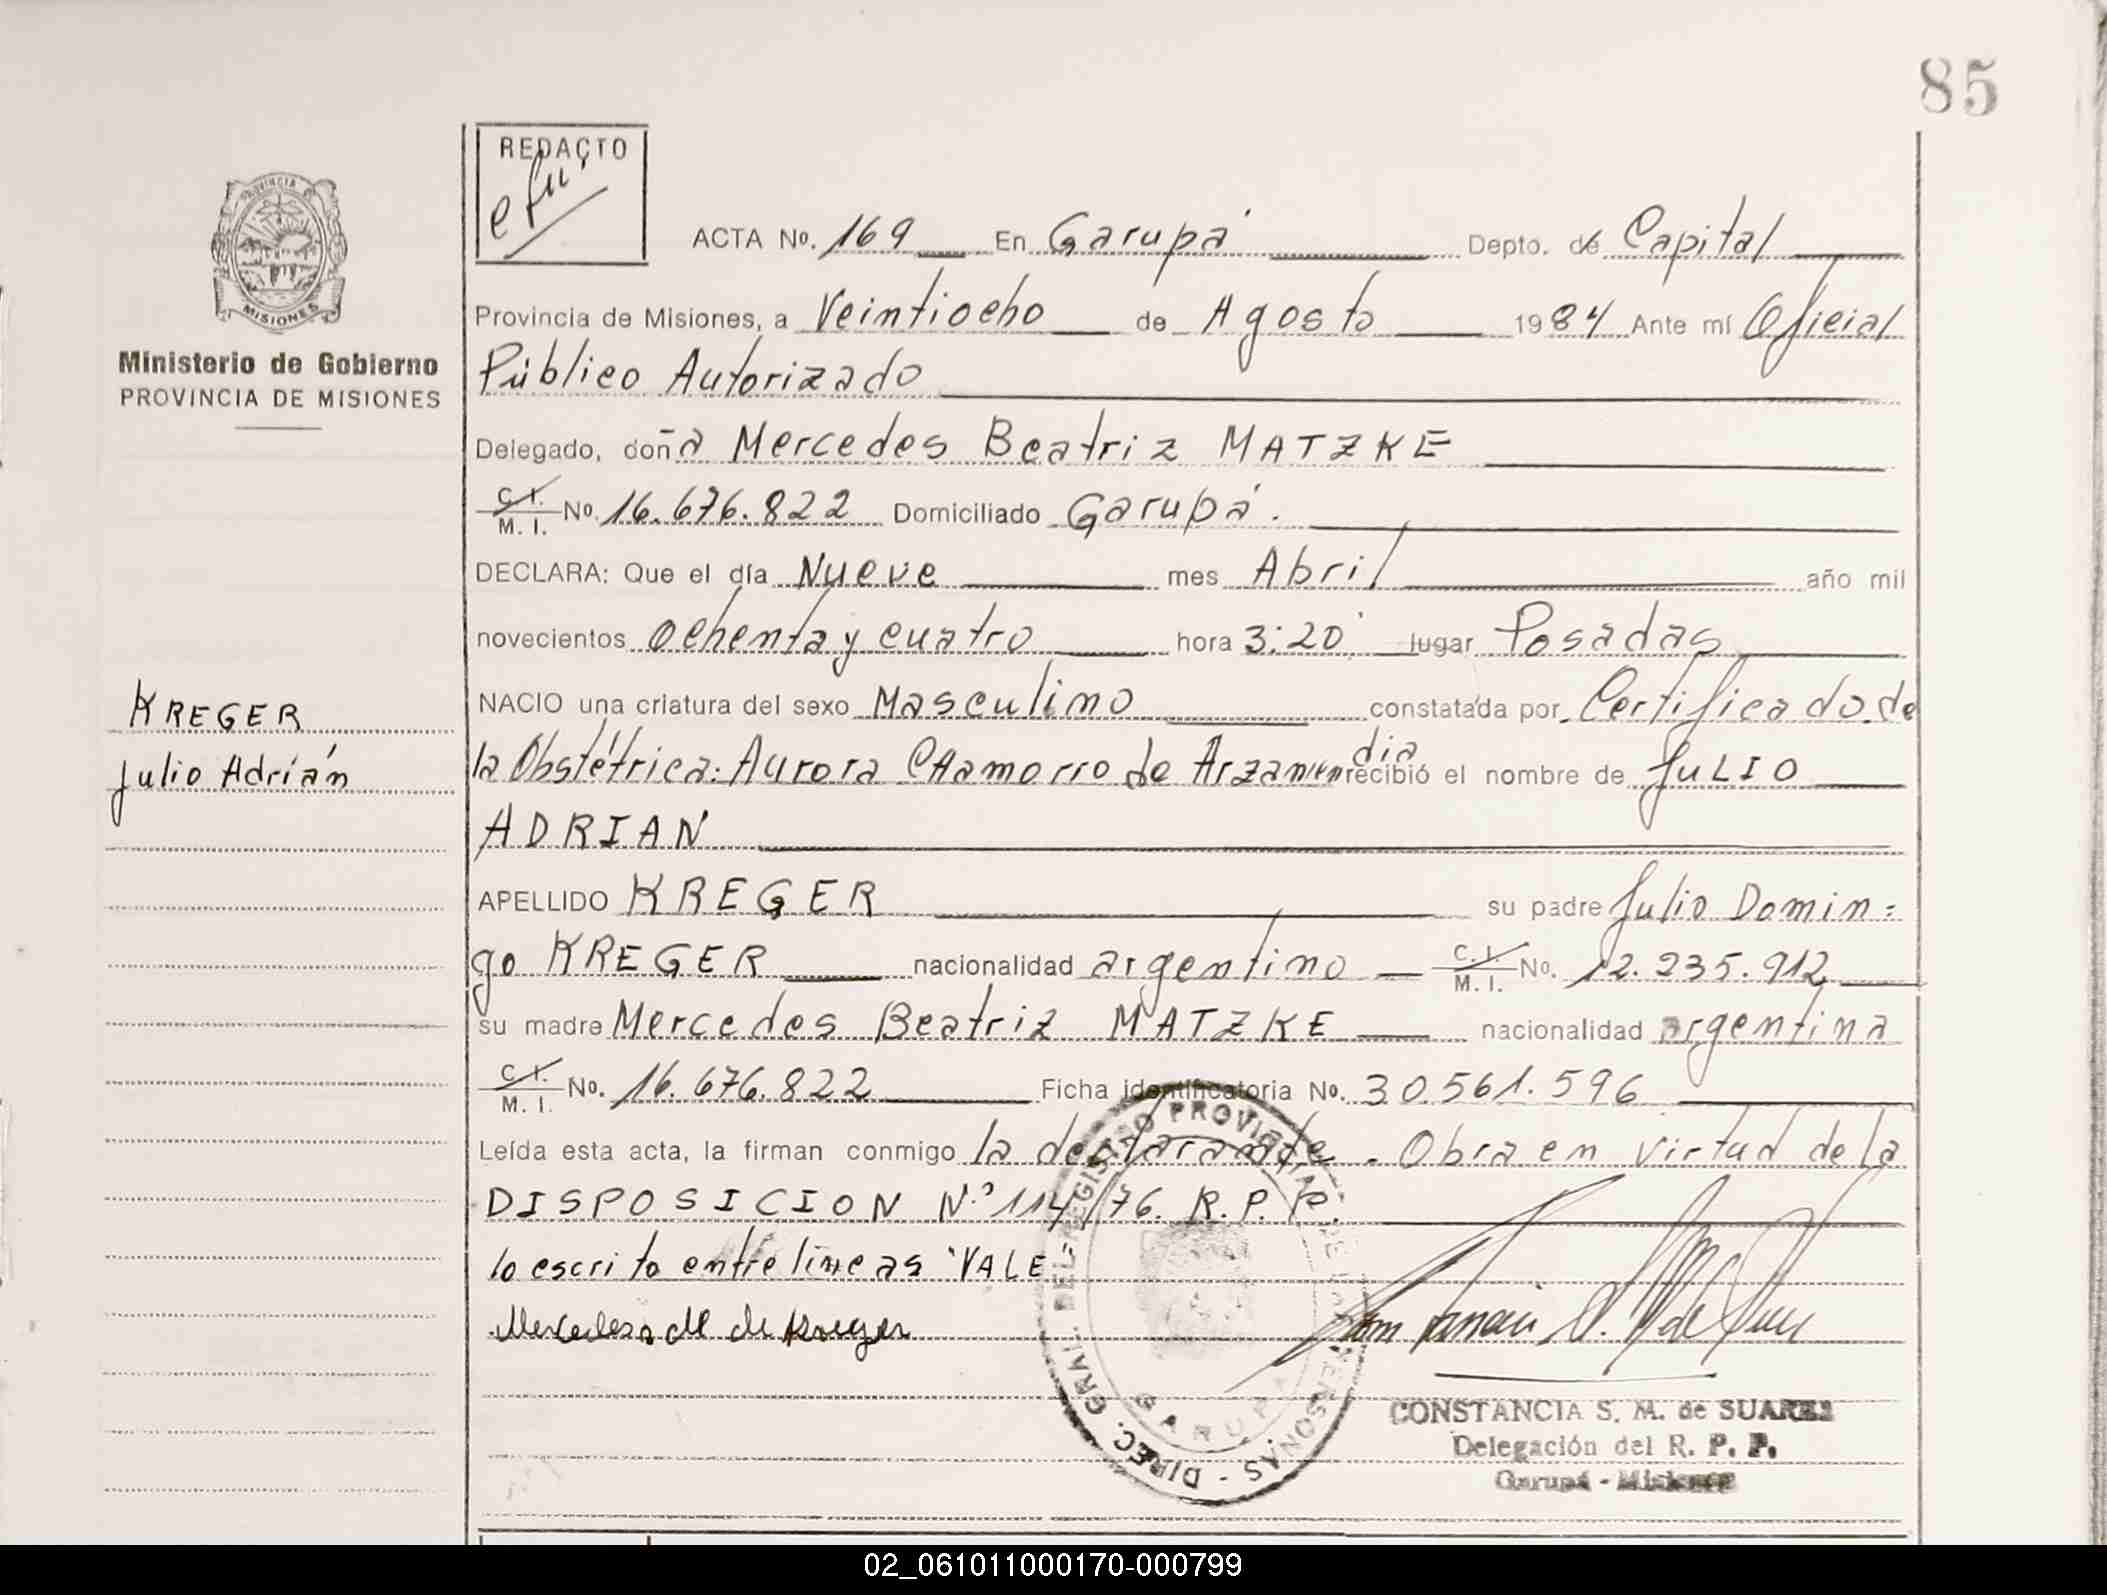 85
REDACTO
ACTA No. 169 En Garupá Depto. de Capital
PROVINCIA
MISIONES
Provincia de Misiones, a Veintiocho de Agosto 1984 Ante mí Oficial
Ministerio de Gobierno
PROVINCIA DE MISIONES
Público Autorizado
Delegado, doña Mercedes Beatriz MATZKE
C. I.
M. I. No. 16.676.822 Domiciliado Garupá.
DECLARA: Que el día Nueve mes Abril año mil
novecientos Ochenta y cuatro hora 3:20' lugar Posadas
NACIO una criatura del sexo Masculino constatada por Certificado de
KREGER
Julio Adrián
la Obstétrica: Aurora Chamorro de Arzamendia recibió el nombre de JULIO
ADRIAN
APELLIDO KREGER su padre Julio Domin=
go KREGER nacionalidad argentino C. I. M. I. No. 12.235.912
su madre Mercedes Beatriz MATZKE nacionalidad argentina
C. I.
M. I. No. 16.676.822 Ficha identificatoria No. 30.561.596
Leída esta acta, la firman conmigo la declarante. Obra en virtud de la
DISPOSICION N.º 114/76. R. P. P.
lo escrito entre líneas "VALE"
Mercedes M de Kreger
DIREC. GRAL. DEL REGISTRO PROVINCIAL DE LAS PERSONAS -
GARUPA
CONSTANCIA S. M. de SUAREZ
Delegación del R. P. P.
Garupá - Misiones
02_061011000170-000799